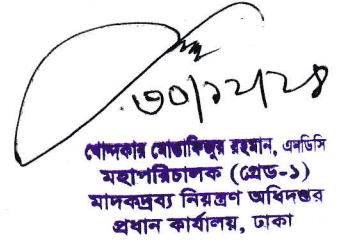 ৩০/১২/২৪
খোন্দকার মোস্তাফিজুর রহমান, এনডিসি
মহাপরিচালক (গ্রেড-১)
মাদকদ্রব্য নিয়ন্ত্রণ অধিদপ্তর
প্রধান কার্যালয়, ঢাকা